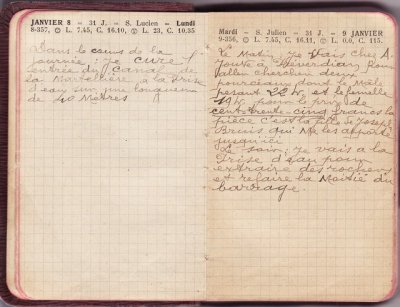 JANVIER 8 — 31 J. — S. Lucien — Lundi
8-357, L. 7.45, C. 16.10, L. 23, C. 10.35
Dans le cours de la
journée: je cure l'
entrée du Canal de
la Martelière, a la Prise
d'eau sur une longueur
de 40 Mètres
Mardi — S. Julien — 31 J. — 9 JANVIER
9-356, L. 7.45, C. 16.11, L. 0.0, C. 115.
Le Matin, Je Vais chez A.
pour
aller chercher deux
pourceaux dont le Mâle
pesant 22 k, et la femelle
19 k pour le prix de
cent trente-cinq francs la
pièce c'est la fille de Joseph
Brunis qui Me les apporte
jusqu'ici
Le soir, Je vais a la
Prise d'eau pour
extraire des rochers
et refaire la Moitié du
barrage.